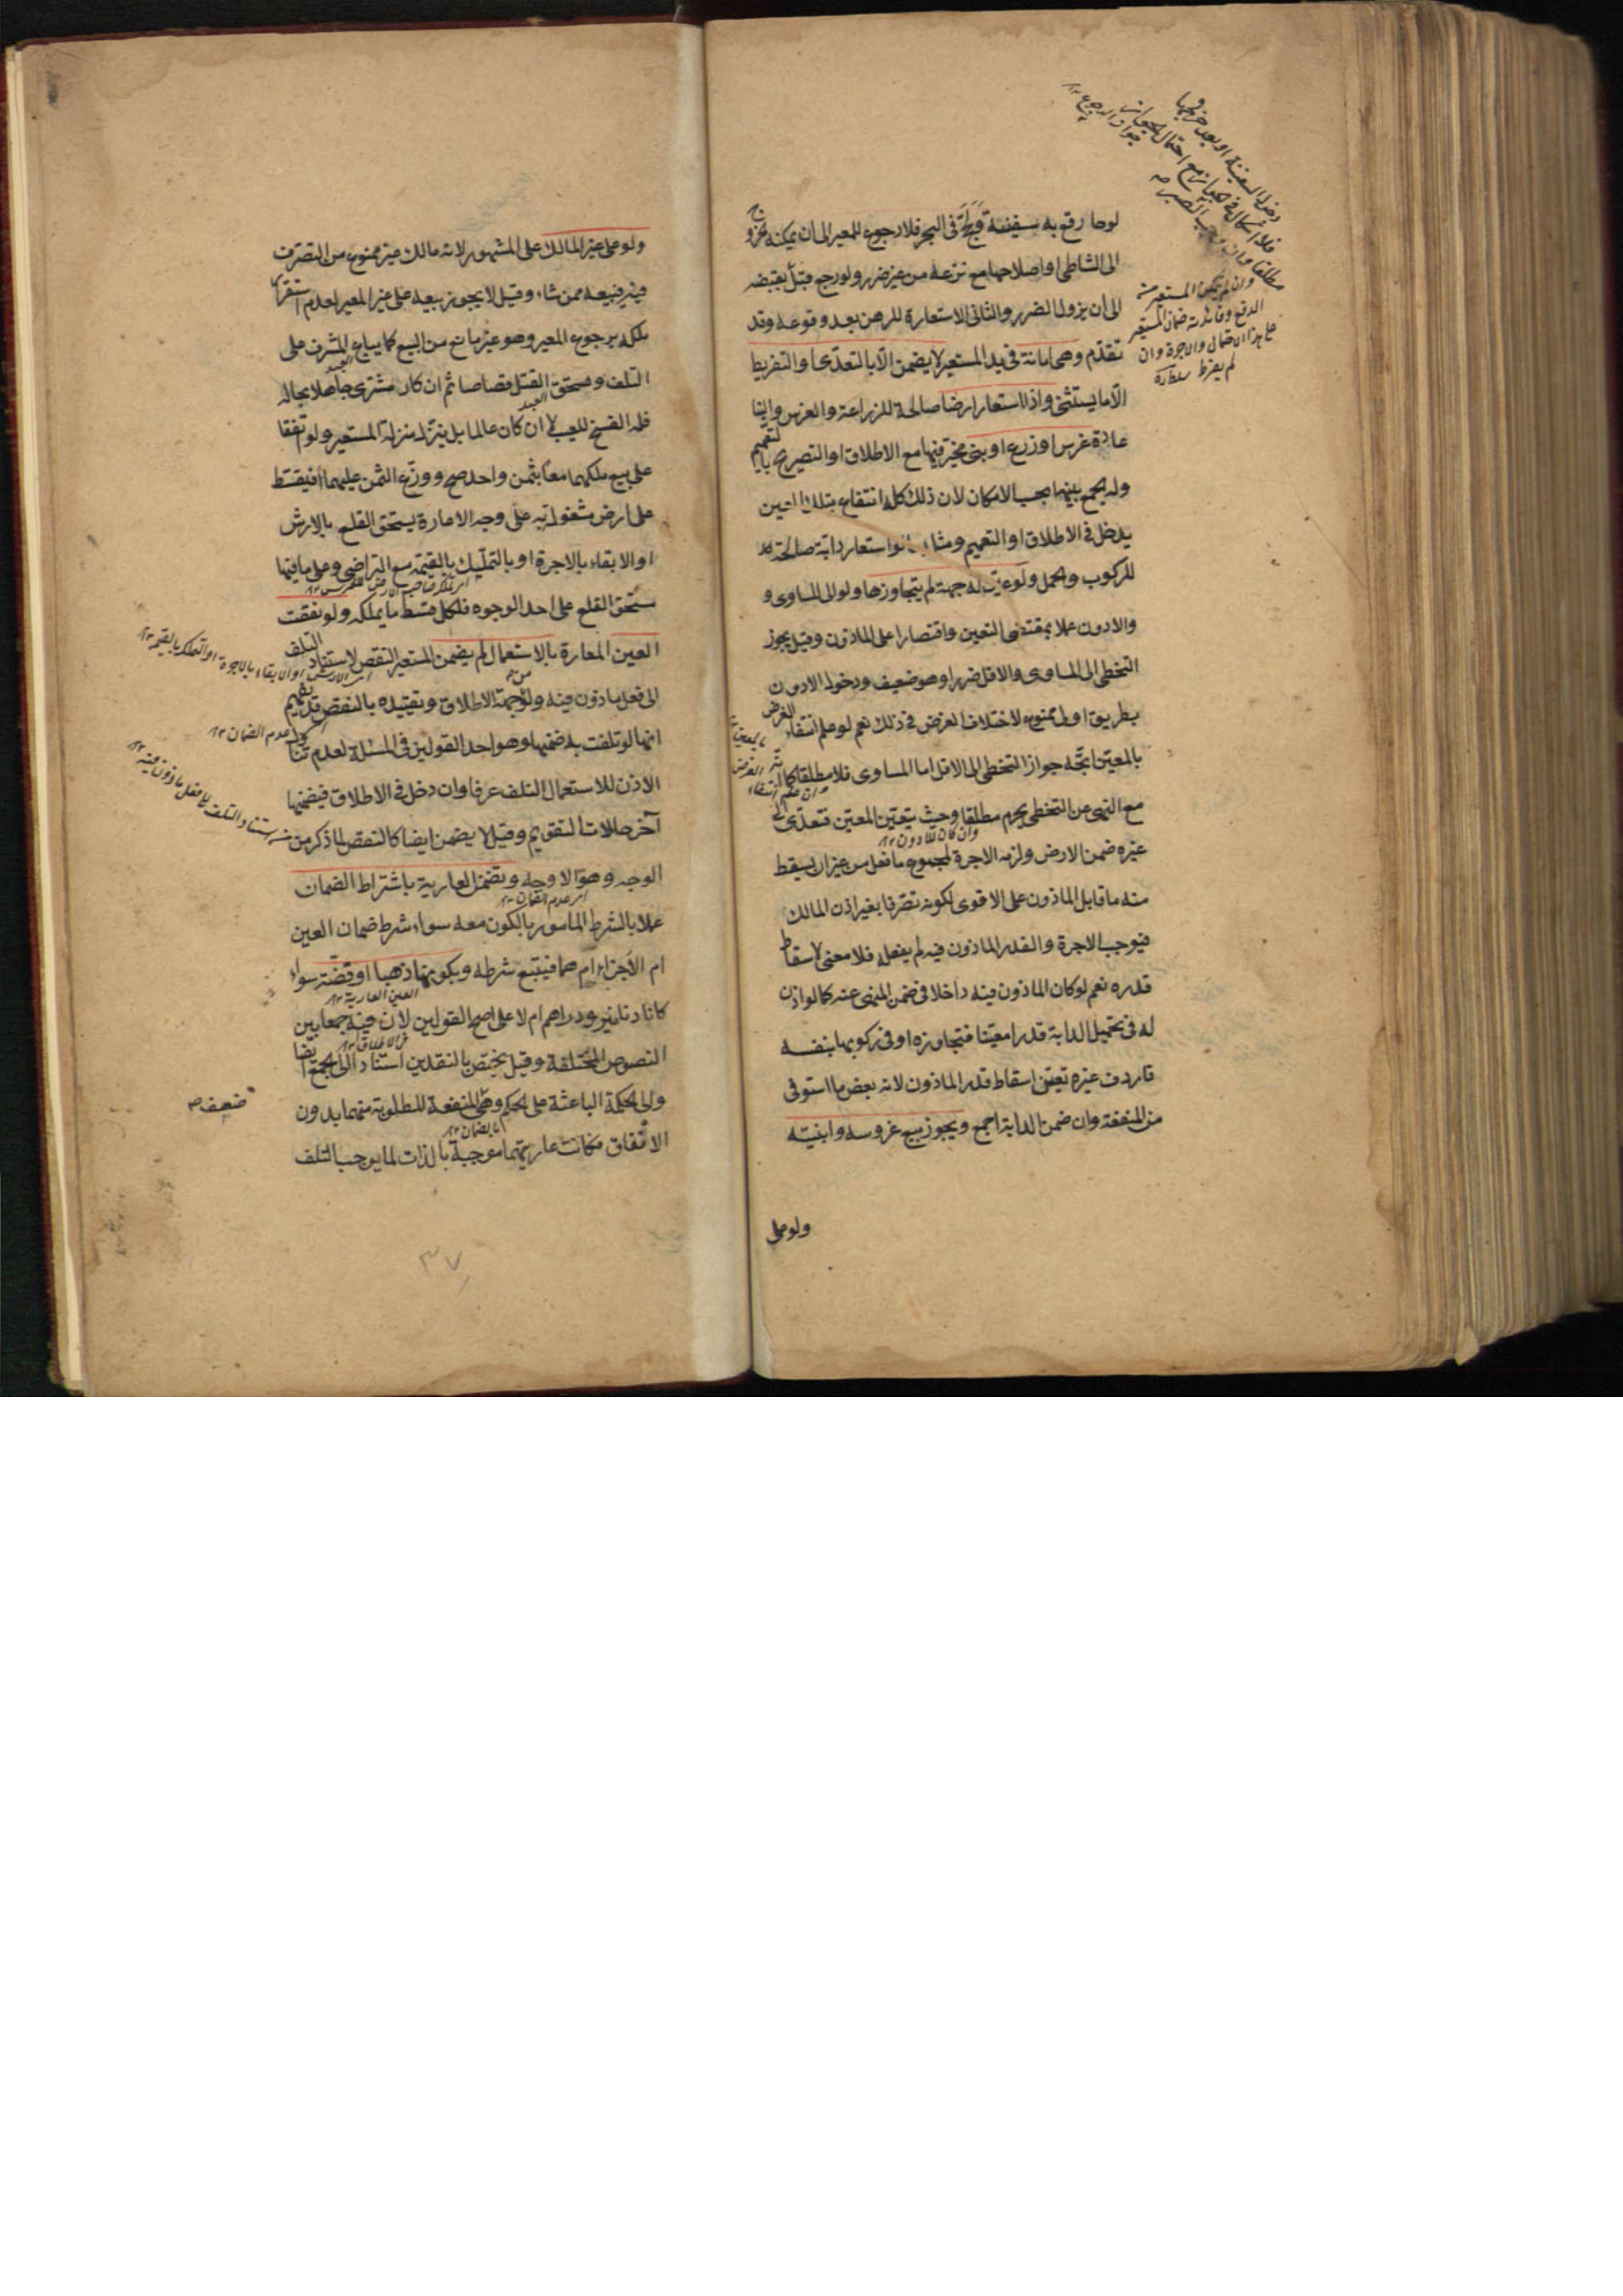 لوحا رقع به سفينة ولججا فى البحر فلا رجوع للمعير الى ان يمكنه الخروج
الى الشاطى او اصلاحها مع نزعه من غير ضرر ولو رجع قبل بقبضه
الى ان يزول الضرر والثانى الاستعارة للرهن بعد وقوعه وقد
تقدم وهى امانة فى يد المستعير لا يضمن الا بالتعدى او التفريط
الا ما يستثنى واذا استعار ارضا صالحة للزراعة والغرس والبنا
عادة غرس او زرع او بنى مخير فيها مع الاطلاق او التصريح بالتعميم
وله الجمع بينها بحسب الامكان لان ذلك كله انتفاع بتلك العين
يدخل فى الاطلاق او التعميم ومثله لو استعار دابة صالحة
للركوب والحمل ولو عين له جهة لم يتجاوزها ولو الى المساوى و
والادون عملا بمقتضى التعيين واقتصارا على الماذون وقيل يجوز
التخطى الى المساوى والاقل ضررا وهو ضعيف ودخول الادون
بطريق اولى ممنوع لاختلاف الغرض فى ذلك نعم لو علم انتفاء الغرض
بالمعين اتجه جواز التخطى الى الاقل اما المساوى فلا مطلقا كما انه
مع النهى عن التخطى يحرم مطلقا وحيث يتعين المعين فتعدى الى
وان كان للادون
غيره ضمن الارض ولزمه الاجرة لمجموع ما فعل من غير ان يسقط
منه ما قابل الماذون على الاقوى لكونه تصرفا بغير اذن المالك
فيوجب الاجرة والقدر الماذون فيه لم يفعله فلا معنى لاسقاط
قدره نعم لو كان الماذون فيه داخلا فى ضمن المنهى عنه كما لو اذن
له فى تحميل الدابة قدرا معينا فتجاوزه او فى ركوبها بنفسه
فاردف غيره تعين اسقاط قدر الماذون لانه بعض ما استوفى
من المنفعة وان ضمن الدابة اجمع ويجوز بيع غروسه وابنيته
ولو على
دخول السفينة او بعد خروجها
وان لم يكن المستعير
الدفع وفائدته ضمان المستعير
على هذا الاحتمال والاجرة وان
لم يفرط سلطان
ولو على غير المالك على المشهور لانه مالك غير ممنوع من التصرف
فيه فيبيعه ممن شاء وقيل لا يجوز بيعه على غير المعير لعدم استقرار
ملكه برجوع المعير وهو غير مانع من البيع كما يباع المشرف على
التلف ومستحق القتل قصاصا ثم ان كان مشترى جاهلا بحاله
العبد
فله الفسخ للعيب لا ان كان عالما بل ينزل منزلة المستعير ولو اتفقا
على بيع ملكهما معا بثمن واحد صح ووزع الثمن عليهما فيقسط
على ارض مشغولة به على وجه الاعارة يستحق القلع بالارش
او الابقاء بالاجرة او بالتمليك بالقيمة مع التراضى وعلى ما فيها
مستحق القلع على احد الوجوه فلكل قسط ما يملكه ولو نقصت
العين المعارة بالاستعمال لم يضمن المستعير النقص لاستناد التلف
اى الارش او الابقاء بالاجرة او التملك بالقيمة
الى فعل ماذون فيه ولو من جهة الاطلاق وتقييده بالنقص قد يفهم
انها لو تلفت به ضمنها وهو احد القولين فى المسئلة لعدم تناول
عدم الضمان
الاذن للاستعمال التلف عرفا وان دخل فى الاطلاق فيضمنها
آخر حالات التقويم وقيل لا يضمن ايضا كالنقص لما ذكر من
استناد التلف الى فعل ماذون فيه
الوجه وهو الاوجه ويضمن العارية باشتراط الضمان
اى عدم الضمان
عملا بالشرط المامور بالكون معه سواء شرط ضمان العين
ام الاجزاء ام هما فيتبع شرطه وبكونها ذهبا او فضة سواء
العين العارية
كانا دنانير ودراهم ام لا على اصح القولين لان فيه جمعا بين
فى الاطلاق
النصوص المختلفة وقيل يختص بالنقدين استنادا الى الجمع ايضا
والى الحكمة الباعثة على الحكم وهى المنفعة المطلوبة منهما بدون
ضعف
بالضمان
الانفاق فكانت عاريتهما موجبة بالذات لما يوجب التلف
٣٧